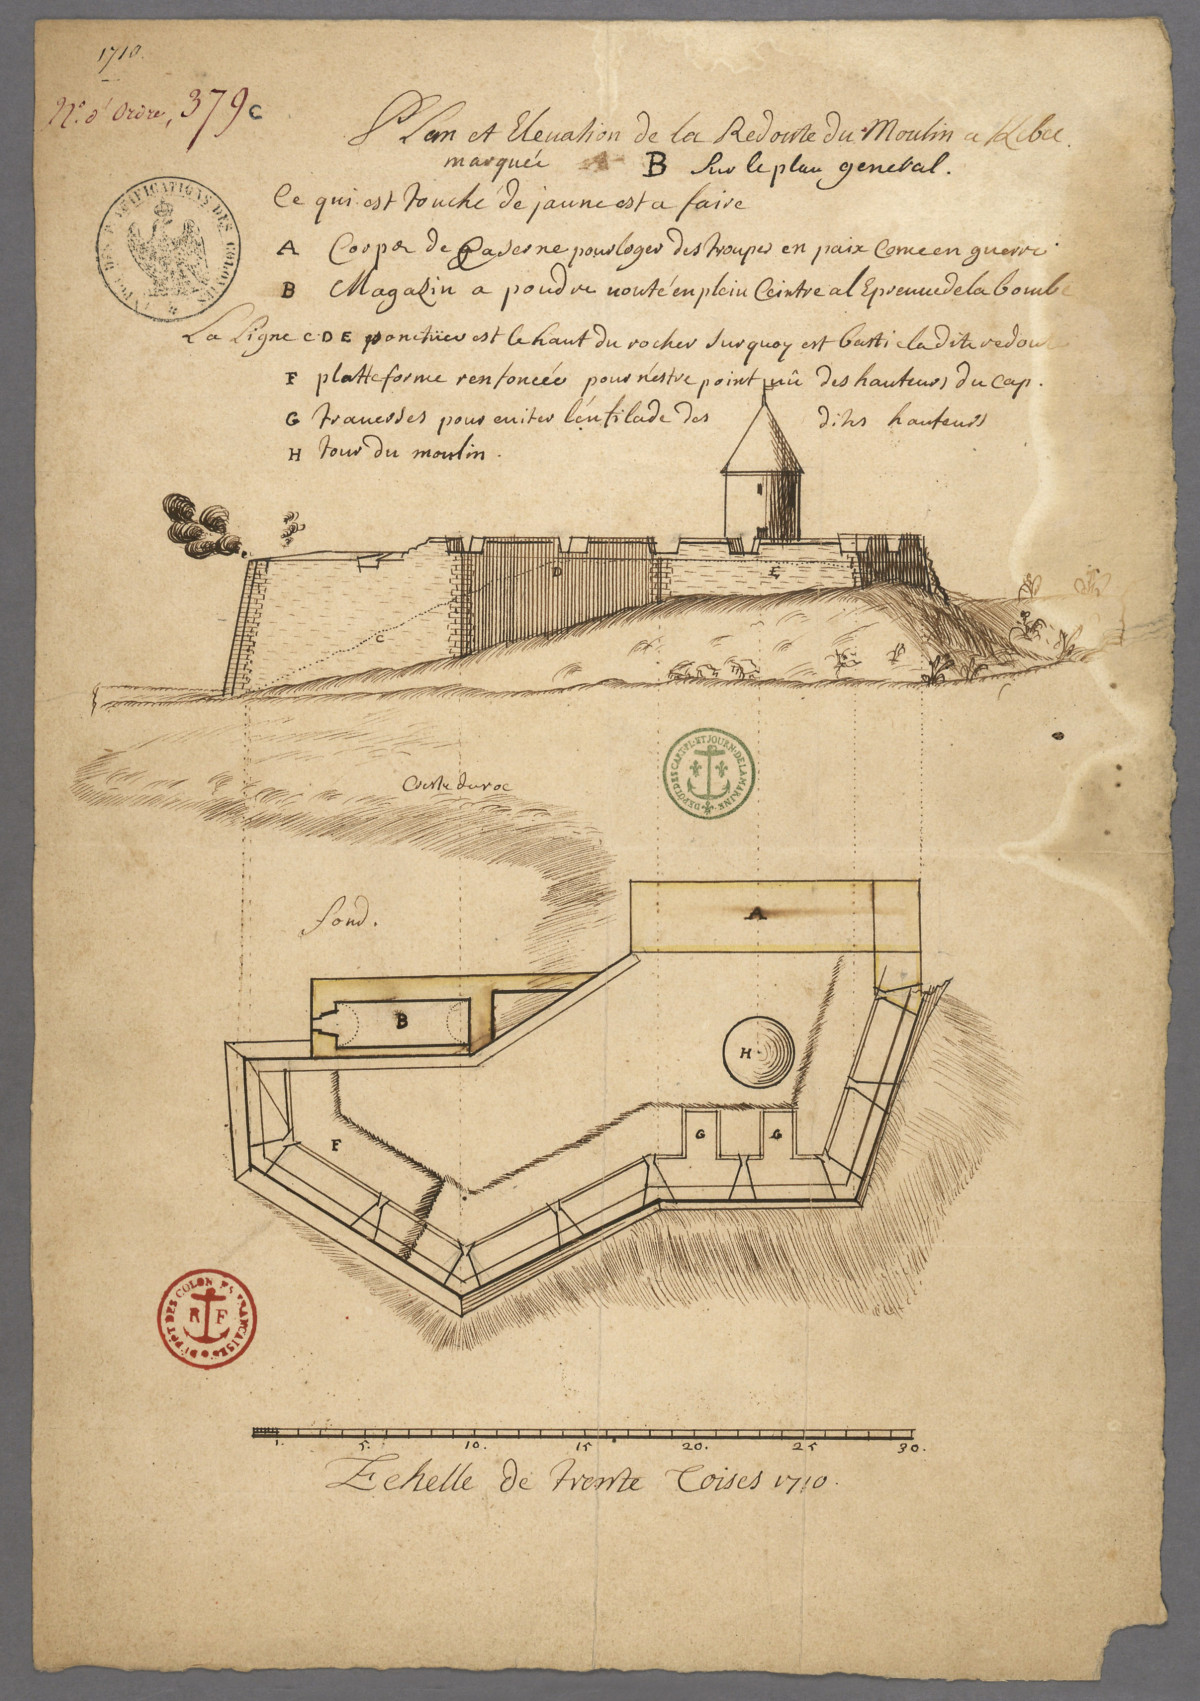 1710.
N.º d'Ordre, 379 C
Plan et Elevation de la Redoute du Moulin a Kebec.
marquée A B Sur le plan general.
Ce qui est touché de jaune est a faire
A Corps de Caserne pour loger des troupes en paix Come en guerre
B Magazin a poudre vouté en plein Ceintre a l Epreuve de la bombe
La Ligne C D E ponctuée est le haut du rocher sur quoy est basti e la dite redoute
F platteforme renfoncée pour n'estre point vû des hauteurs du Cap.
G traverses pour eviter l'enfilade des dites hauteurs
H tour du moulin.
DES FORTIFICATIONS DES COLONIES
D
E
C
Creste du roc
DEPOT DES CART. PL. ET JOURN. DE LA MARINE
A
fond.
B
H
F
G
G
DÉPÔT DES COLONIES FRANÇAISES
R F
1. 5. 10. 15 20. 25 30.
Echelle de trente Toises 1710.